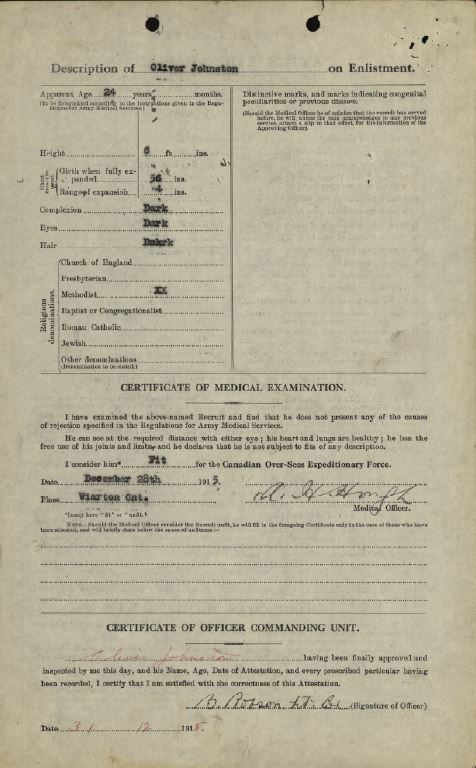 Description of Oliver Johnston on Enlistment.
Apparent Age 24 years months.
(To be determined according to the instructions given in the Regulations for Army Medical Services.)
Distinctive marks, and marks indicating congenital peculiarities or previous disease.
(Should the Medical Officer be of opinion that the recruit has served before, he will, unless the man acknowledges to any previous service, attach a slip to that effect, for the information of the Approving Officer).
Height 6 ft. ins.
Girth when fully expanded 36 ins.
Range of expansion 4 ins.
Complexion Dark
Eyes Dark
Hair Dakrk
Religious denominations.
Church of England
Presbyterian
Methodist XX
Baptist or Congregationalist
Roman Catholic
Jewish
Other denominations
(Denomination to be stated.)
CERTIFICATE OF MEDICAL EXAMINATION.
I have examined the above-named Recruit and find that he does not present any of the causes
of rejection specified in the Regulations for Army Medical Services.
He can see at the required distance with either eye; his heart and lungs are healthy; he has the
free use of his joints and limbs, and he declares that he is not subject to fits of any description.
I consider him* Fit for the Canadian Over-Seas Expeditionary Force.
Date December 28th 1915.
Place Wiarton Ont.
Medical Officer.
*Insert here "fit" or "unfit."
NOTE.—Should the Medical Officer consider the Recruit unfit, he will fill in the foregoing Certificate only in the case of those who have
been attested, and will briefly state below the cause of unfitness:—
CERTIFICATE OF OFFICER COMMANDING UNIT.
Oliver Johnston having been finally approved and
inspected by me this day, and his Name, Age, Date of Attestation, and every prescribed particular having
been recorded, I certify that I am satisfied with the correctness of this Attestation.
(Signature of Officer)
Date 31 12 1915.